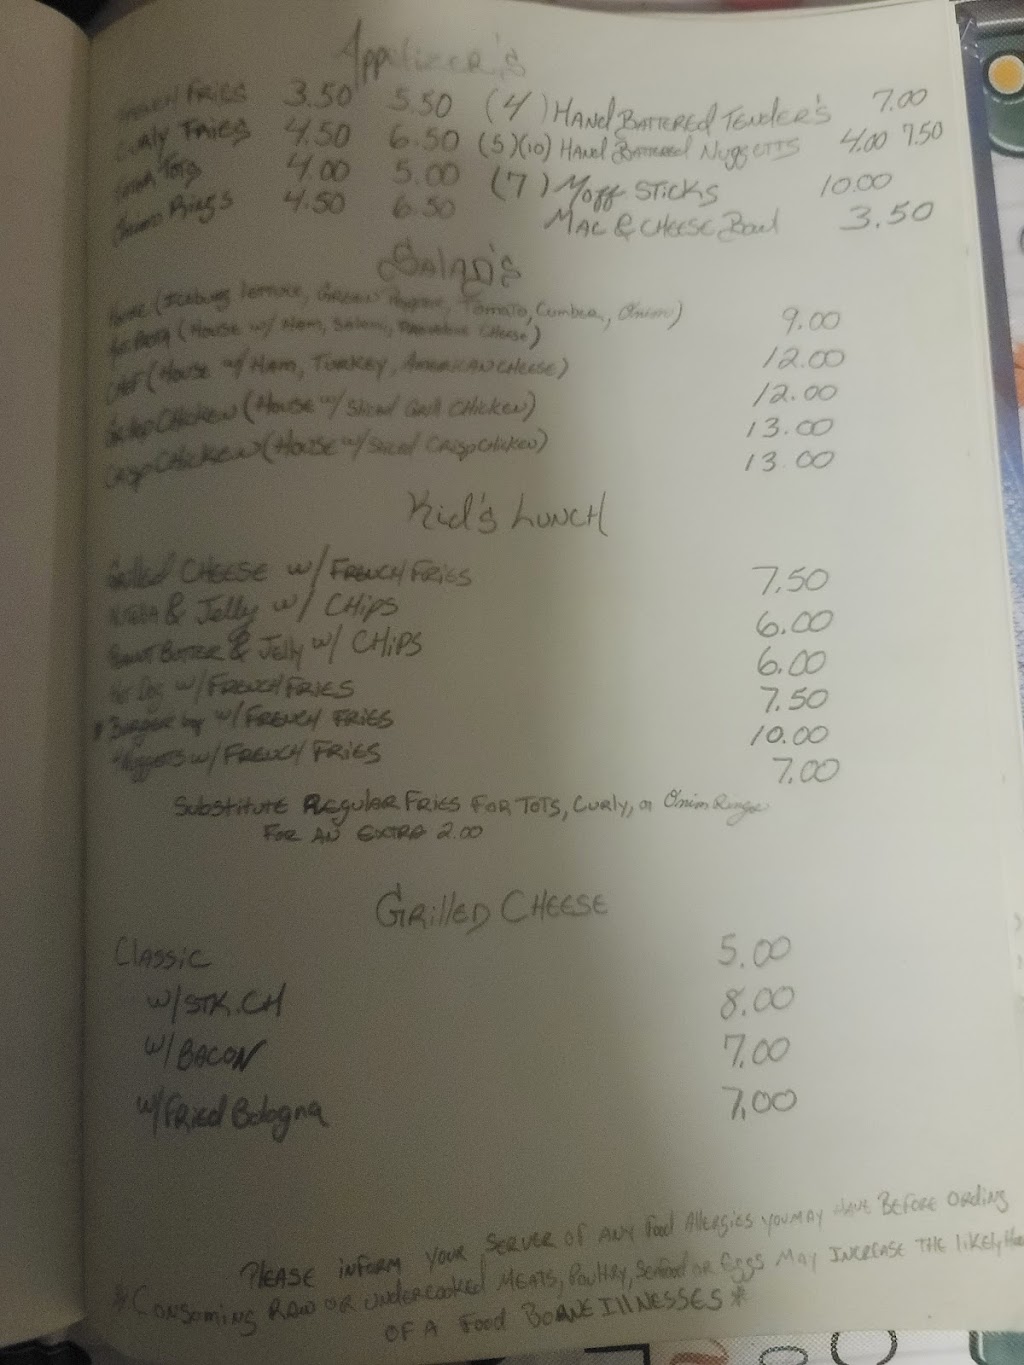 Appitizer's
FRENCH FRIES 3.50 5.50 (4) HAND BATTERED TENDER'S 7.00
CURLY FRIES 4.50 6.50 (5)(10) HAND BATTERED NUGGETTS 4.00 7.50
TOTS 4.00 5.00 (7) MOFF STICKS 10.00
Onion Rings 4.50 6.50 MAC & CHEESE Bowl 3.50
SALAD'S
(Iceburg lettuce, GREEN Pepper, Tomato, Cumber, Onion) 9.00
(House w/ Ham, Salami, CHEESE) 12.00
CHEF (House w/ HAM, TURKEY, AMERICAN CHEESE) 12.00
CHICKEN (House w/ Sliced Grill CHICKEN) 13.00
CRISP CHICKEN (House w/ Sliced CRISP Chicken) 13.00
Kid's LUNCH
Grilled CHEESE w/ FRENCH FRIES 7.50
& Jelly w/ CHIPS 6.00
BUTTER & Jelly w/ CHIPS 6.00
Hot Dog w/ FRENCH FRIES 7.50
* BURGER w/ FRENCH FRIES 10.00
NUGGETS w/ FRENCH FRIES 7.00
Substitute REgulAR FRIES FOR TOTS, CURLY, or Onion Rings
FOR AN EXTRA 2.00
GRillED CHEESE
Classic 5.00
w/STK.CH 8.00
w/BACON 7.00
w/FRIED Bologna 7.00
PLEASE INFORM YOUR SERVER OF ANY Food Allergies YOU MAY HAVE BEFORE ORDING
*CONSOMING RAW OR UNDERCOOKED MEATS, POULTRY, SEAFOOD OR EGGS MAY INCREASE THE likelyHood
OF A FOOD BORNE IllNESSES*